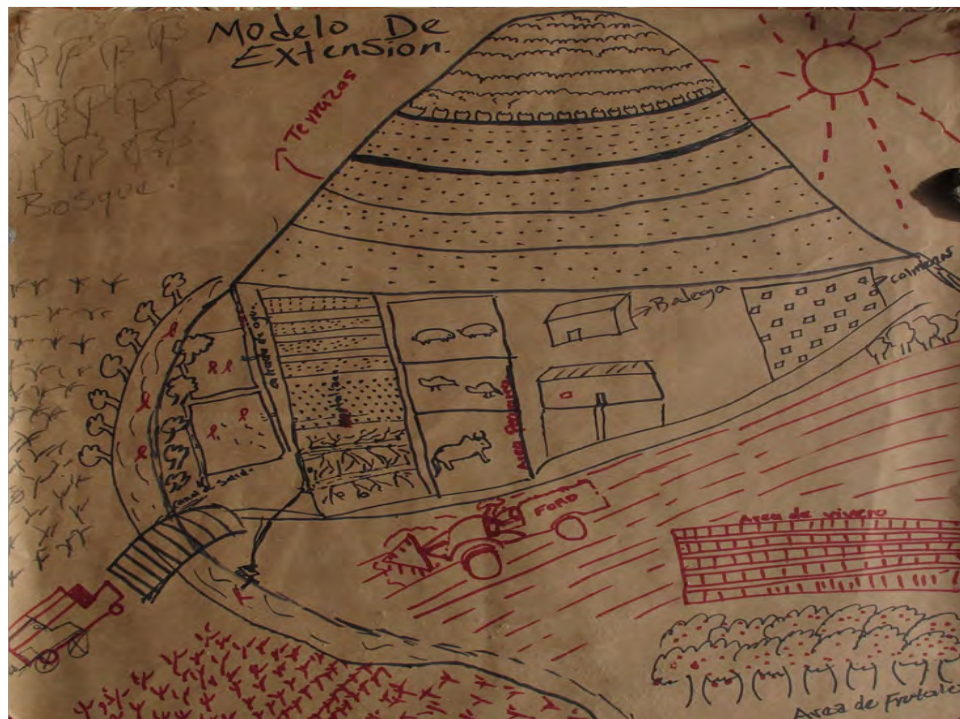 Modelo De
Extension.
Terrazas
Bosque.
Bodega
Colmenas
Area
FORD
Area de vivero
Area de Frutales